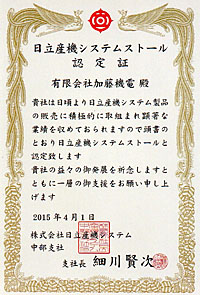 日立産機システムストール
認定証
有限会社加藤機電 殿
貴社は日頃より日立産機システム製品
の販売に積極的に取組まれ顕著な
業績を収めておられますので頭書の
とおり日立産機システムストールと
認定致します
貴社の益々の御発展を祈念しますと
ともに一層の御支援をお願い申し上
げます
2015年4月1日
株式会社日立産機システム
中部支社
支社長 細川賢次